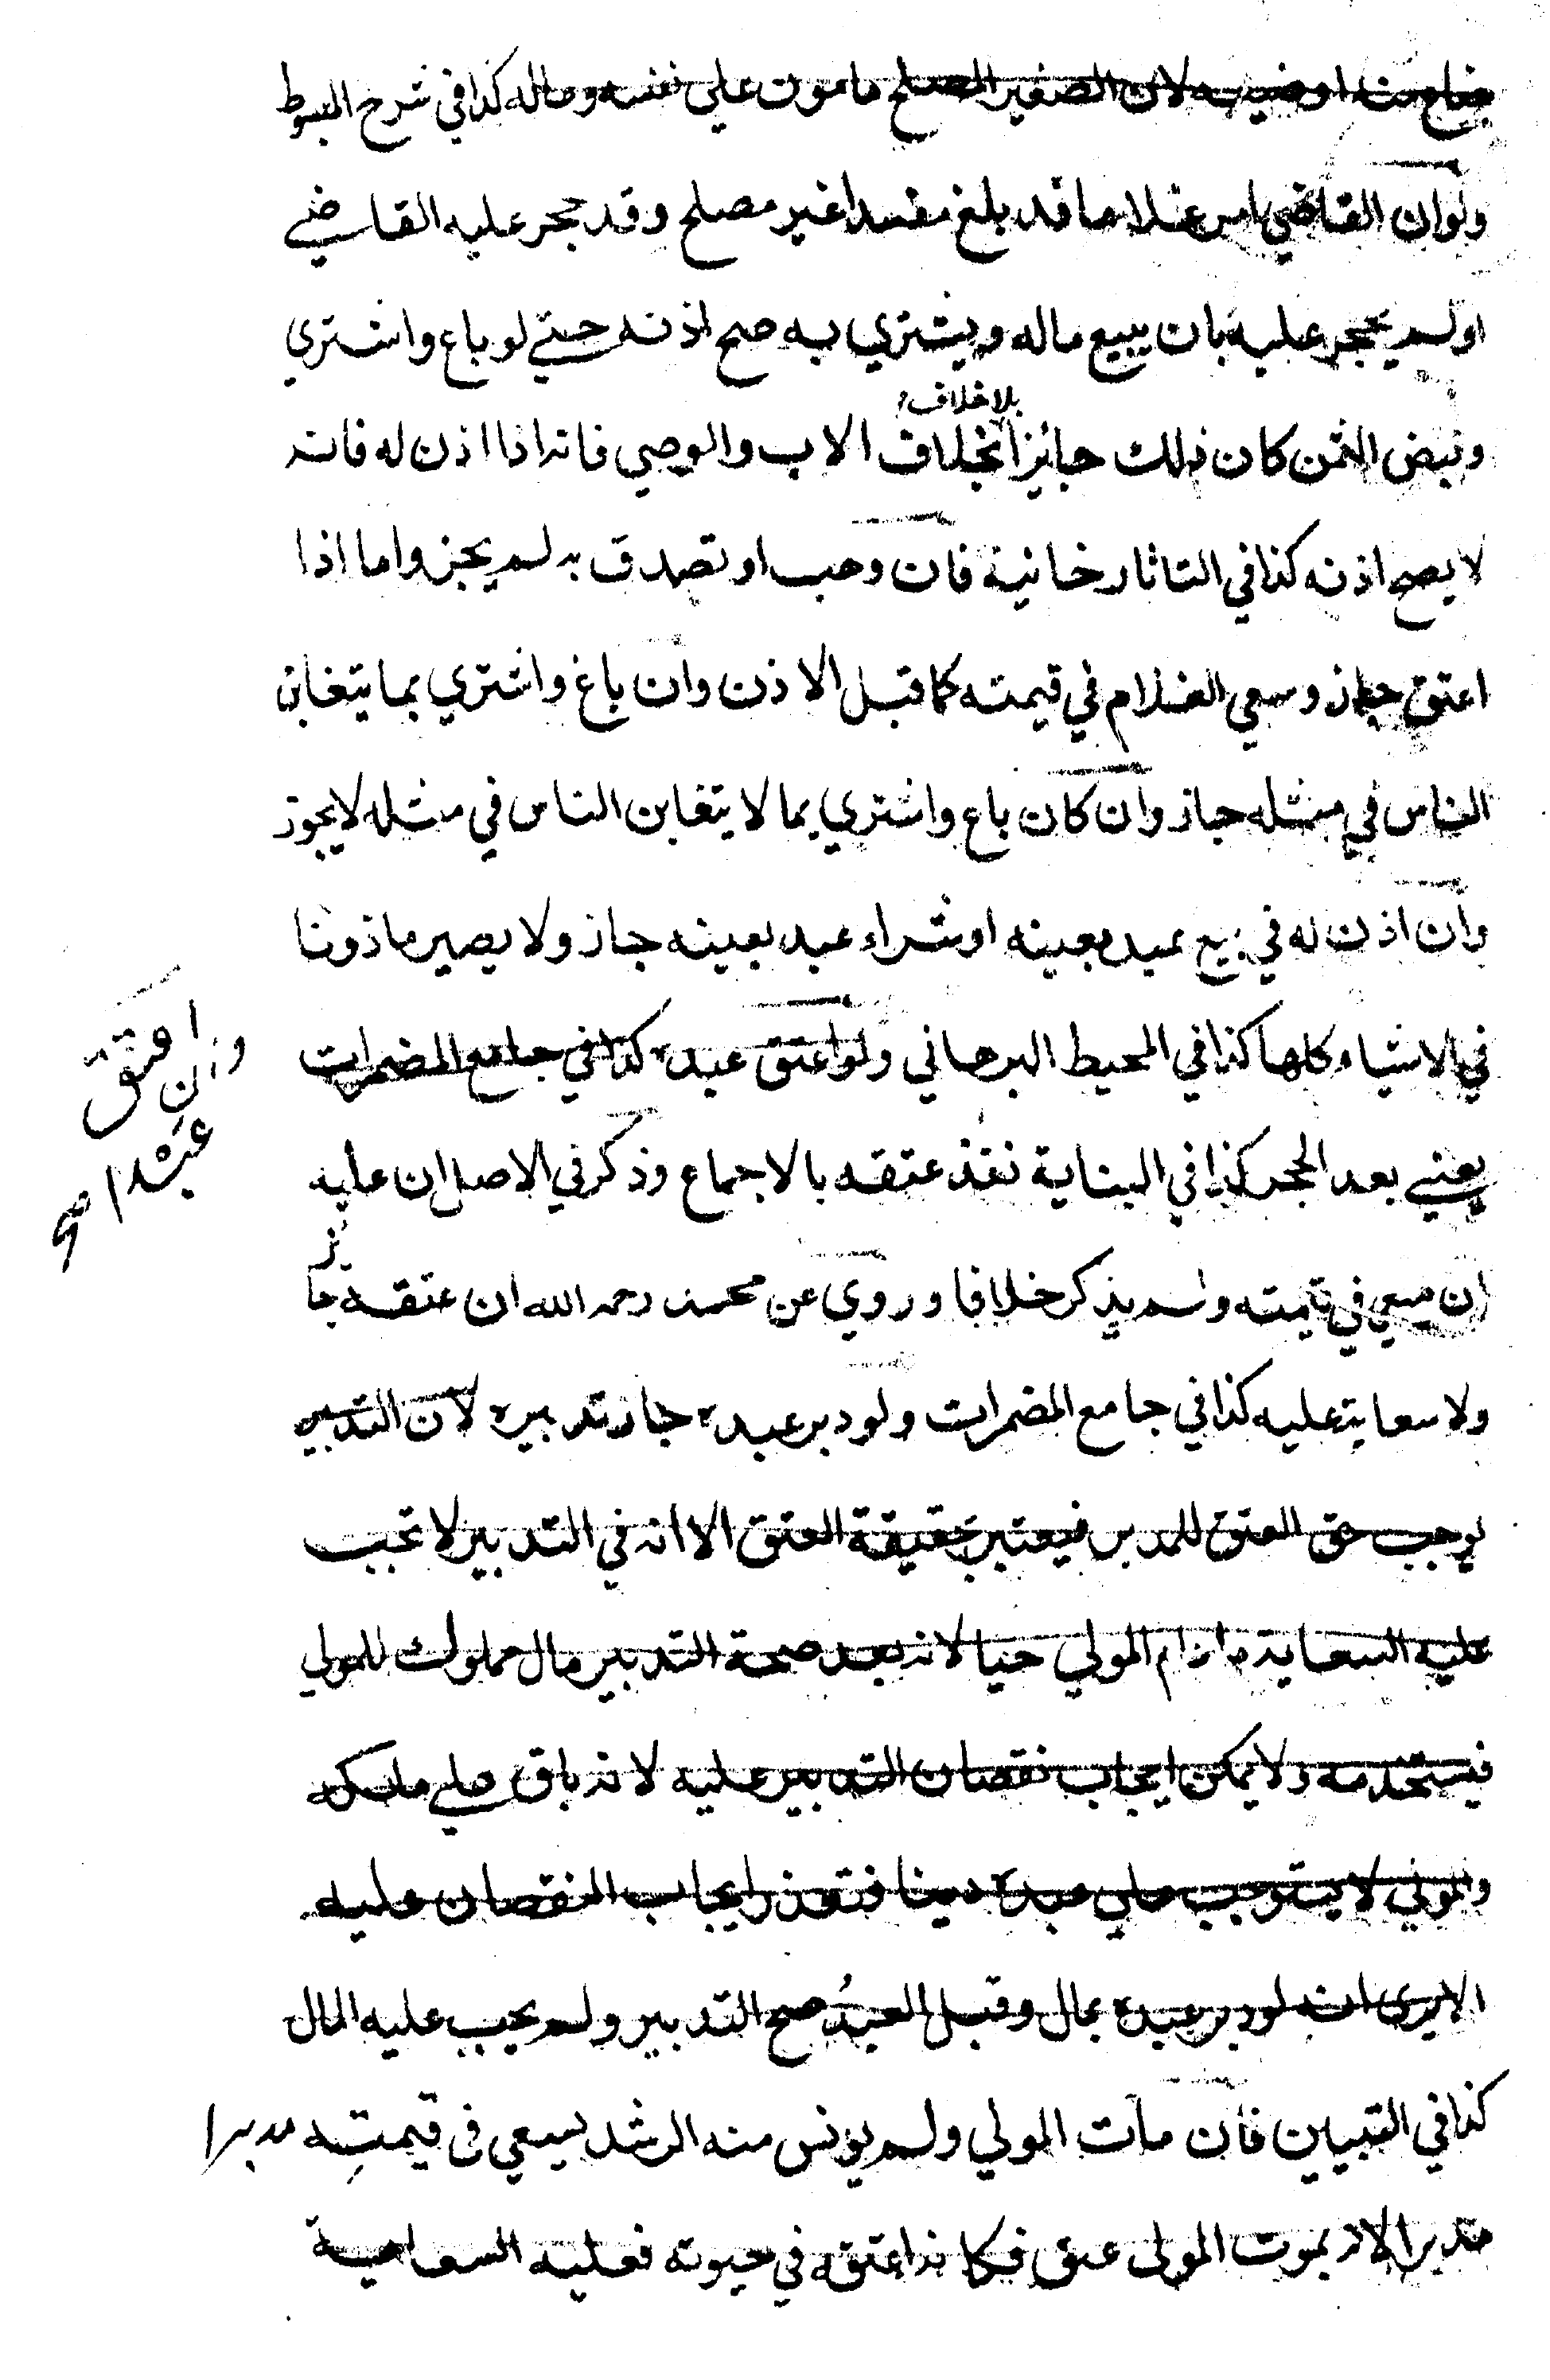 فباع منه او وهبه لان الصغير المصلح مامون على نفسه وماله كذا في شرح المبسوط
ولوان القاضي امر غلاما قد بلغ مفسدا غير مصلح وقد حجر عليه القاضي
اولم يحجر عليه بان يبيع ماله ويشتري به صح اذنه حتي لو باع واشتري
وقبض الثمن كان ذلك جائزا بلا خلاف بخلاف الاب والوصي فانه اذا اذن له فانه
لا يصح اذنه كذا في التاتارخانية فان وهب او تصدق به لم يجز واما اذا
اعتق جاز وسعي الغلام في قيمته كما قبل الاذن وان باع واشتري بما يتغابن
الناس في مثله جاز وان كان باع واشتري بما لا يتغابن الناس في مثله لا يجوز
وان اذن له في بيع عبد بعينه او شراء عبد بعينه جاز ولا يصير ماذونا
في الاشياء كلها كذا في المحيط البرهاني ولو اعتق عبده كذا في جامع المضمرات
وان اعتق
عبدا صح
يعني بعد الحجر كذا في البناية نفذ عتقه بالاجماع وذكر في الاصل ان عليه
ان يسعي في قيمته ولم يذكر خلافا وروي عن محمد رحمه الله ان عتقه جائز
ولا سعاية عليه كذا في جامع المضمرات ولو دبر عبده جاز تدبيره لان التدبير
يوجب حق العتق للمدبر فيعتبر بحقيقة العتق الا انه في التدبير لا تجب
عليه السعاية ما دام المولي حيا لانه بعد صحة التدبير مال مملوك للمولي
فيستخدمه ولا يمكن ايجاب نقصان التدبير عليه لانه باق علي ملكه
والمولي لا يستوجب علي عبده دينا فتعذر ايجاب النقصان عليه
الا يري انه لو دبر عبده بمال وقبل العبدُ صح التدبير ولم يجب عليه المال
كذا في التبيين فان مات المولي ولم يونس منه الرشد يسعي في قيمته مدبرا
مدبرا لان بموت المولى عتق فكانه اعتقه في حيوته فعليه السعاية